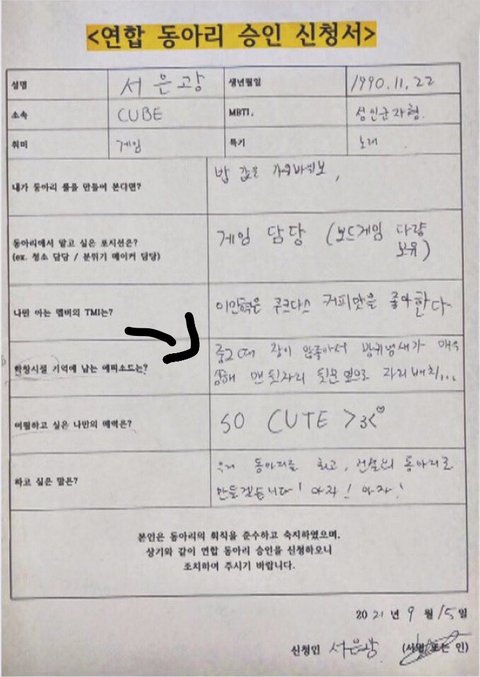 <연합 동아리 승인 신청서>
성명 서은광 생년월일 1990.11.22
소속 CUBE MBTI. 성인군자형.
취미 게임 특기 노래.
내가 동아리 룰을 만들어 본다면? 밥 값은 가위바위보,
동아리에서 맡고 싶은 포지션은?
(ex. 청소 담당 / 분위기 메이커 담당)
게임 담당 (보드게임 다량
보유)
나만 아는 멤버의 TMI는? 이민혁은 쿠크다스 커피맛을 좋아한다
학창시절 기억에 남는 에피소드는?
중2때 장이 안좋아서 방귀냄새가 매우
심해 맨 뒷자리 뒷문 옆으로 자리배치...
어필하고 싶은 나만의 매력은? SO CUTE >3<♡
하고 싶은 말은?
우리 동아리를 최고, 전설의 동아리로
만들겠습니다! 아자! 아자!
본인은 동아리의 회칙을 준수하고 숙지하였으며,
상기와 같이 연합 동아리 승인을 신청하오니
조치하여 주시기 바랍니다.
2021년 9월 15일
신청인 서은광 (서명 또는 인)